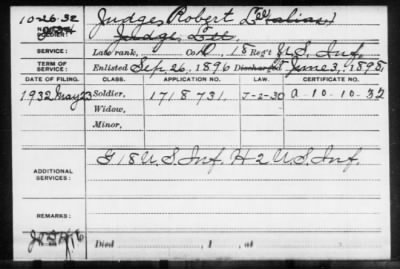 10-26-32 Judges, Robert Lee (alias)
Judge, Lee
SOLDIER:
SERVICE: Late rank, Co. D, 18 Reg't U.S. Inf.
TERM OF SERVICE: Enlisted Sep. 26, 1896 Discharged June 3, 1898
DATE OF FILING. CLASS. APPLICATION NO. LAW. CERTIFICATE NO.
1932 May 23 Soldier, 1718731. J-2-30 a-10-10-32
Widow,
Minor,
ADDITIONAL SERVICES: G 18 U.S. Inf. H 2 U.S. Inf.
REMARKS:
Died , 1 , at